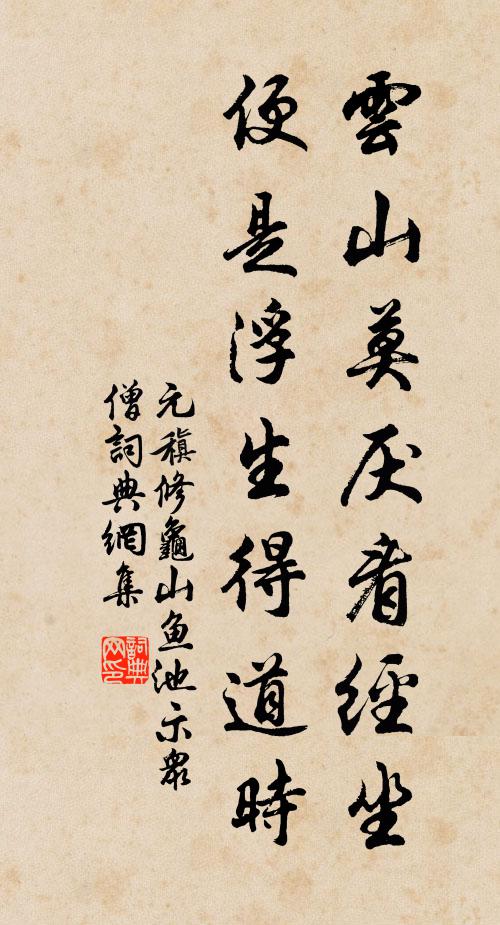 雲山莫厌看經坐
便是浮生得道時
元稹修龜山鱼池示眾
僧詞典網集
詞典
网印